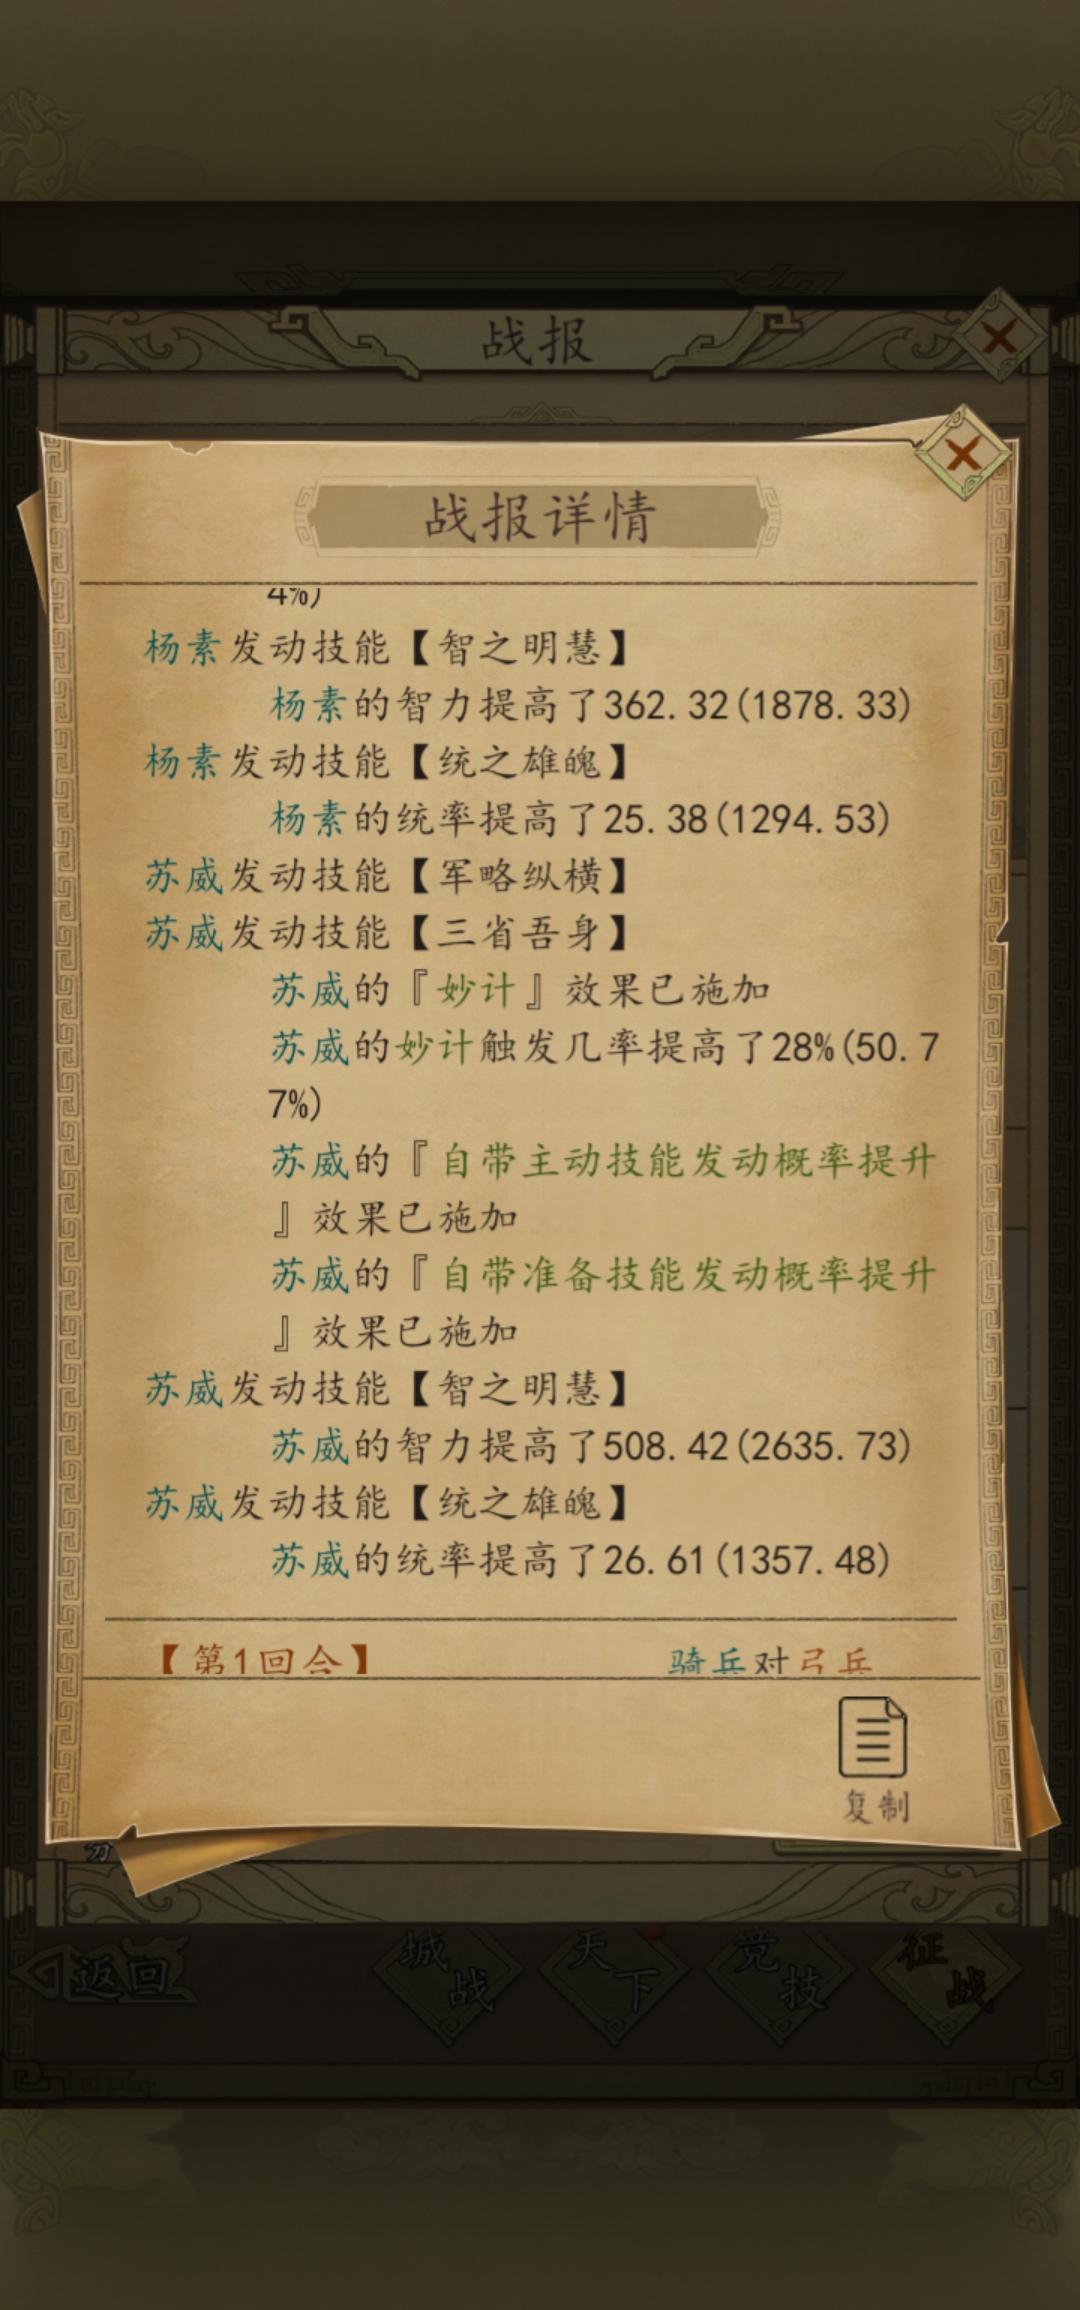 战报
战报详情
4%)
杨素发动技能【智之明慧】
杨素的智力提高了362.32(1878.33)
杨素发动技能【统之雄魄】
杨素的统率提高了25.38(1294.53)
苏威发动技能【军略纵横】
苏威发动技能【三省吾身】
苏威的『妙计』效果已施加
苏威的妙计触发几率提高了28%(50.7
7%)
苏威的『自带主动技能发动概率提升
』效果已施加
苏威的『自带准备技能发动概率提升
』效果已施加
苏威发动技能【智之明慧】
苏威的智力提高了508.42(2635.73)
苏威发动技能【统之雄魄】
苏威的统率提高了26.61(1357.48)
【第1回合】 骑兵对弓兵
复制
返回 城战 天下 竞技 征战